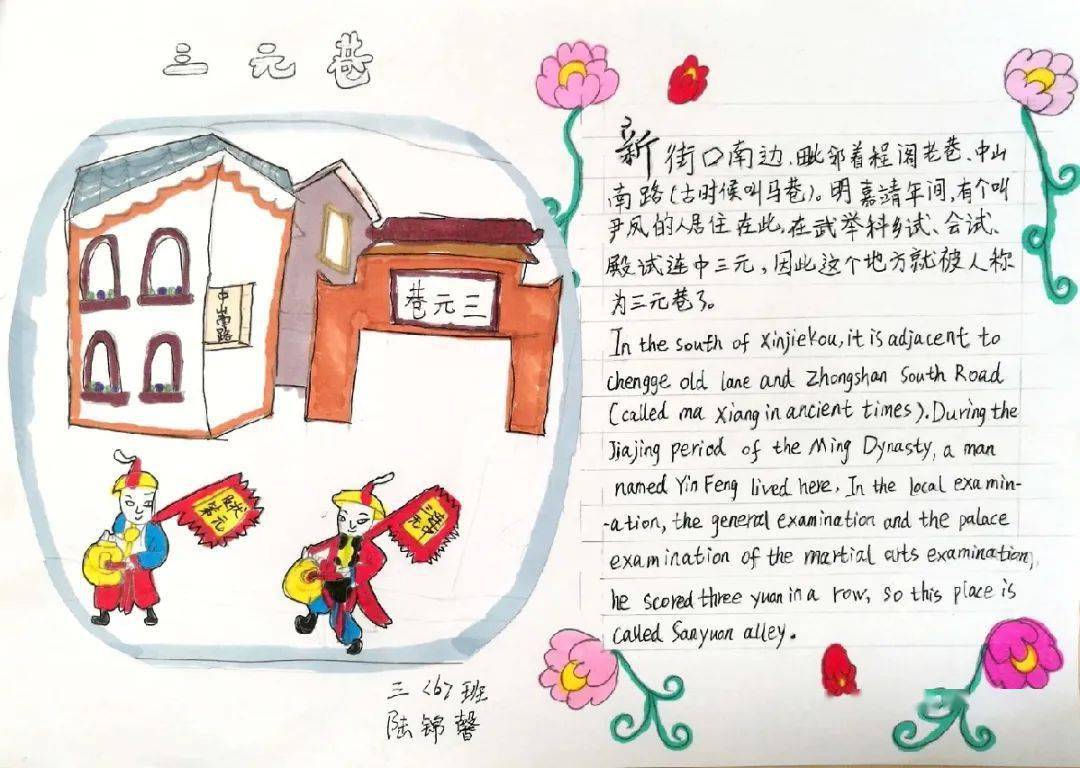 三元巷
中山南路
巷元三
新街口南边、毗邻着程阁老巷、中山
南路(古时候叫马巷)。明嘉靖年间,有个叫
尹凤的人居住在此,在武举科乡试、会试、
殿试连中三元,因此这个地方就被人称
为三元巷了。
In the south of Xinjiekou, it is adjacent to
chengge old lane and Zhongshan South Road
(called ma Xiang in ancient times). During the
Jiajing period of the Ming Dynasty, a man
named Yin Feng lived here. In the local examin-
-ation, the general examination and the palace
examination of the martial arts examination,
he scored three yuan in a row, so this place is
called Sanyuan alley.
三〈6〉班
陆锦馨